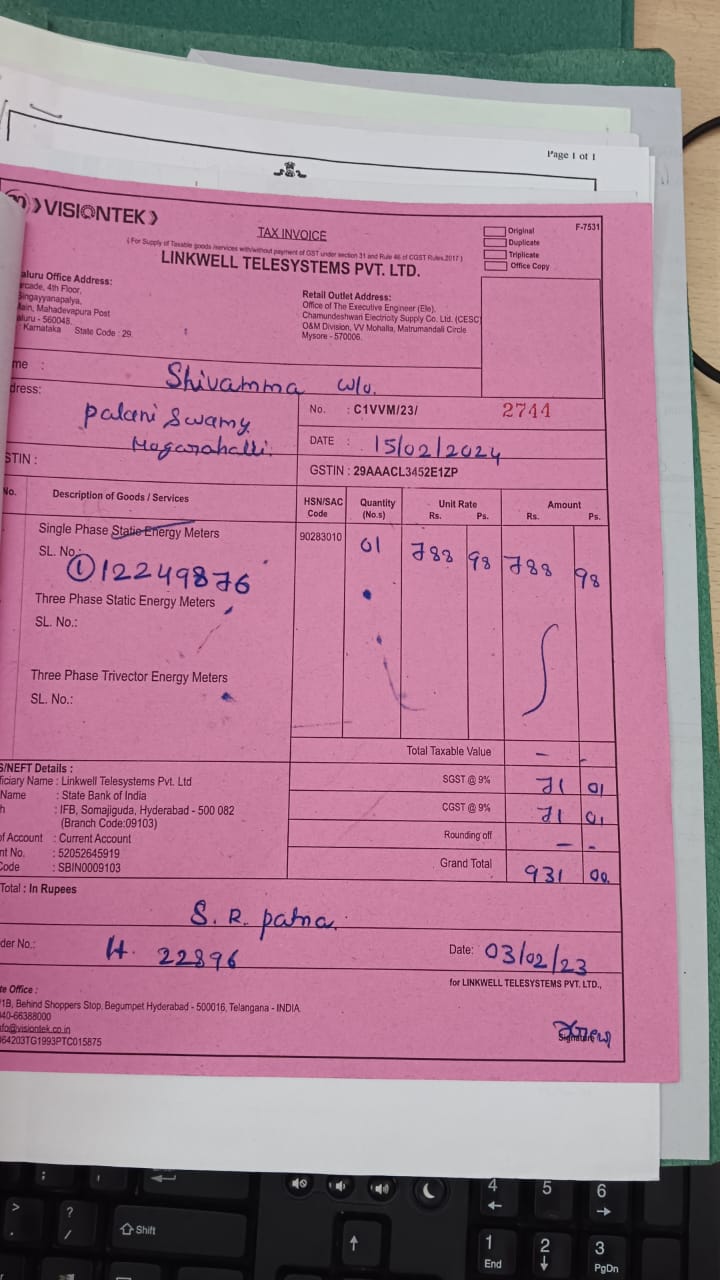 Page 1 of 1
VISIONTEK
TAX INVOICE
(For Supply of Taxable goods /services with/without payment of GST under section 31 and Rule 46 of CGST Rules,2017)
LINKWELL TELESYSTEMS PVT. LTD.
F-7531
Original
Duplicate
Triplicate
Office Copy
aluru Office Address:
rcade, 4th Floor,
Singayyanapalya,
ain, Mahadevapura Post
aluru - 560048.
Karnataka State Code : 29.
Retail Outlet Address:
Office of The Executive Engineer (Ele),
Chamundeshwari Electricity Supply Co. Ltd. (CESC)
O&M Division, VV Mohalla, Matrumandali Circle
Mysore - 570006.
me : Shivamma W/o.
dress: Palani Swamy
Megarahalli.
No. : C1VVM/23/ 2744
DATE : 15/02/2024
STIN :
GSTIN : 29AAACL3452E1ZP
No. Description of Goods / Services HSN/SAC Code Quantity (No.s) Unit Rate Rs. Ps. Amount Rs. Ps.
Single Phase Static Energy Meters 90283010 01 788 98 788 98
SL. No.: ① 12249876
Three Phase Static Energy Meters
SL. No.:
Three Phase Trivector Energy Meters
SL. No.:
Total Taxable Value - -
SGST @ 9% 71 01
CGST @ 9% 71 01
Rounding off - -
Grand Total 931 00
S/NEFT Details :
iciary Name : Linkwell Telesystems Pvt. Ltd
Name : State Bank of India
h : IFB, Somajiguda, Hyderabad - 500 082
(Branch Code:09103)
of Account : Current Account
nt No. : 52052645919
Code : SBIN0009103
Total : In Rupees
S. R. Patna.
der No.: H. 22896 Date: 03/02/23
for LINKWELL TELESYSTEMS PVT. LTD.,
te Office :
1B, Behind Shoppers Stop, Begumpet Hyderabad - 500016, Telangana - INDIA
040-66388000
nfo@visiontek.co.in
64203TG1993PTC015875
Signature
Shift
4
5
6
1
End
2
3
PgDn